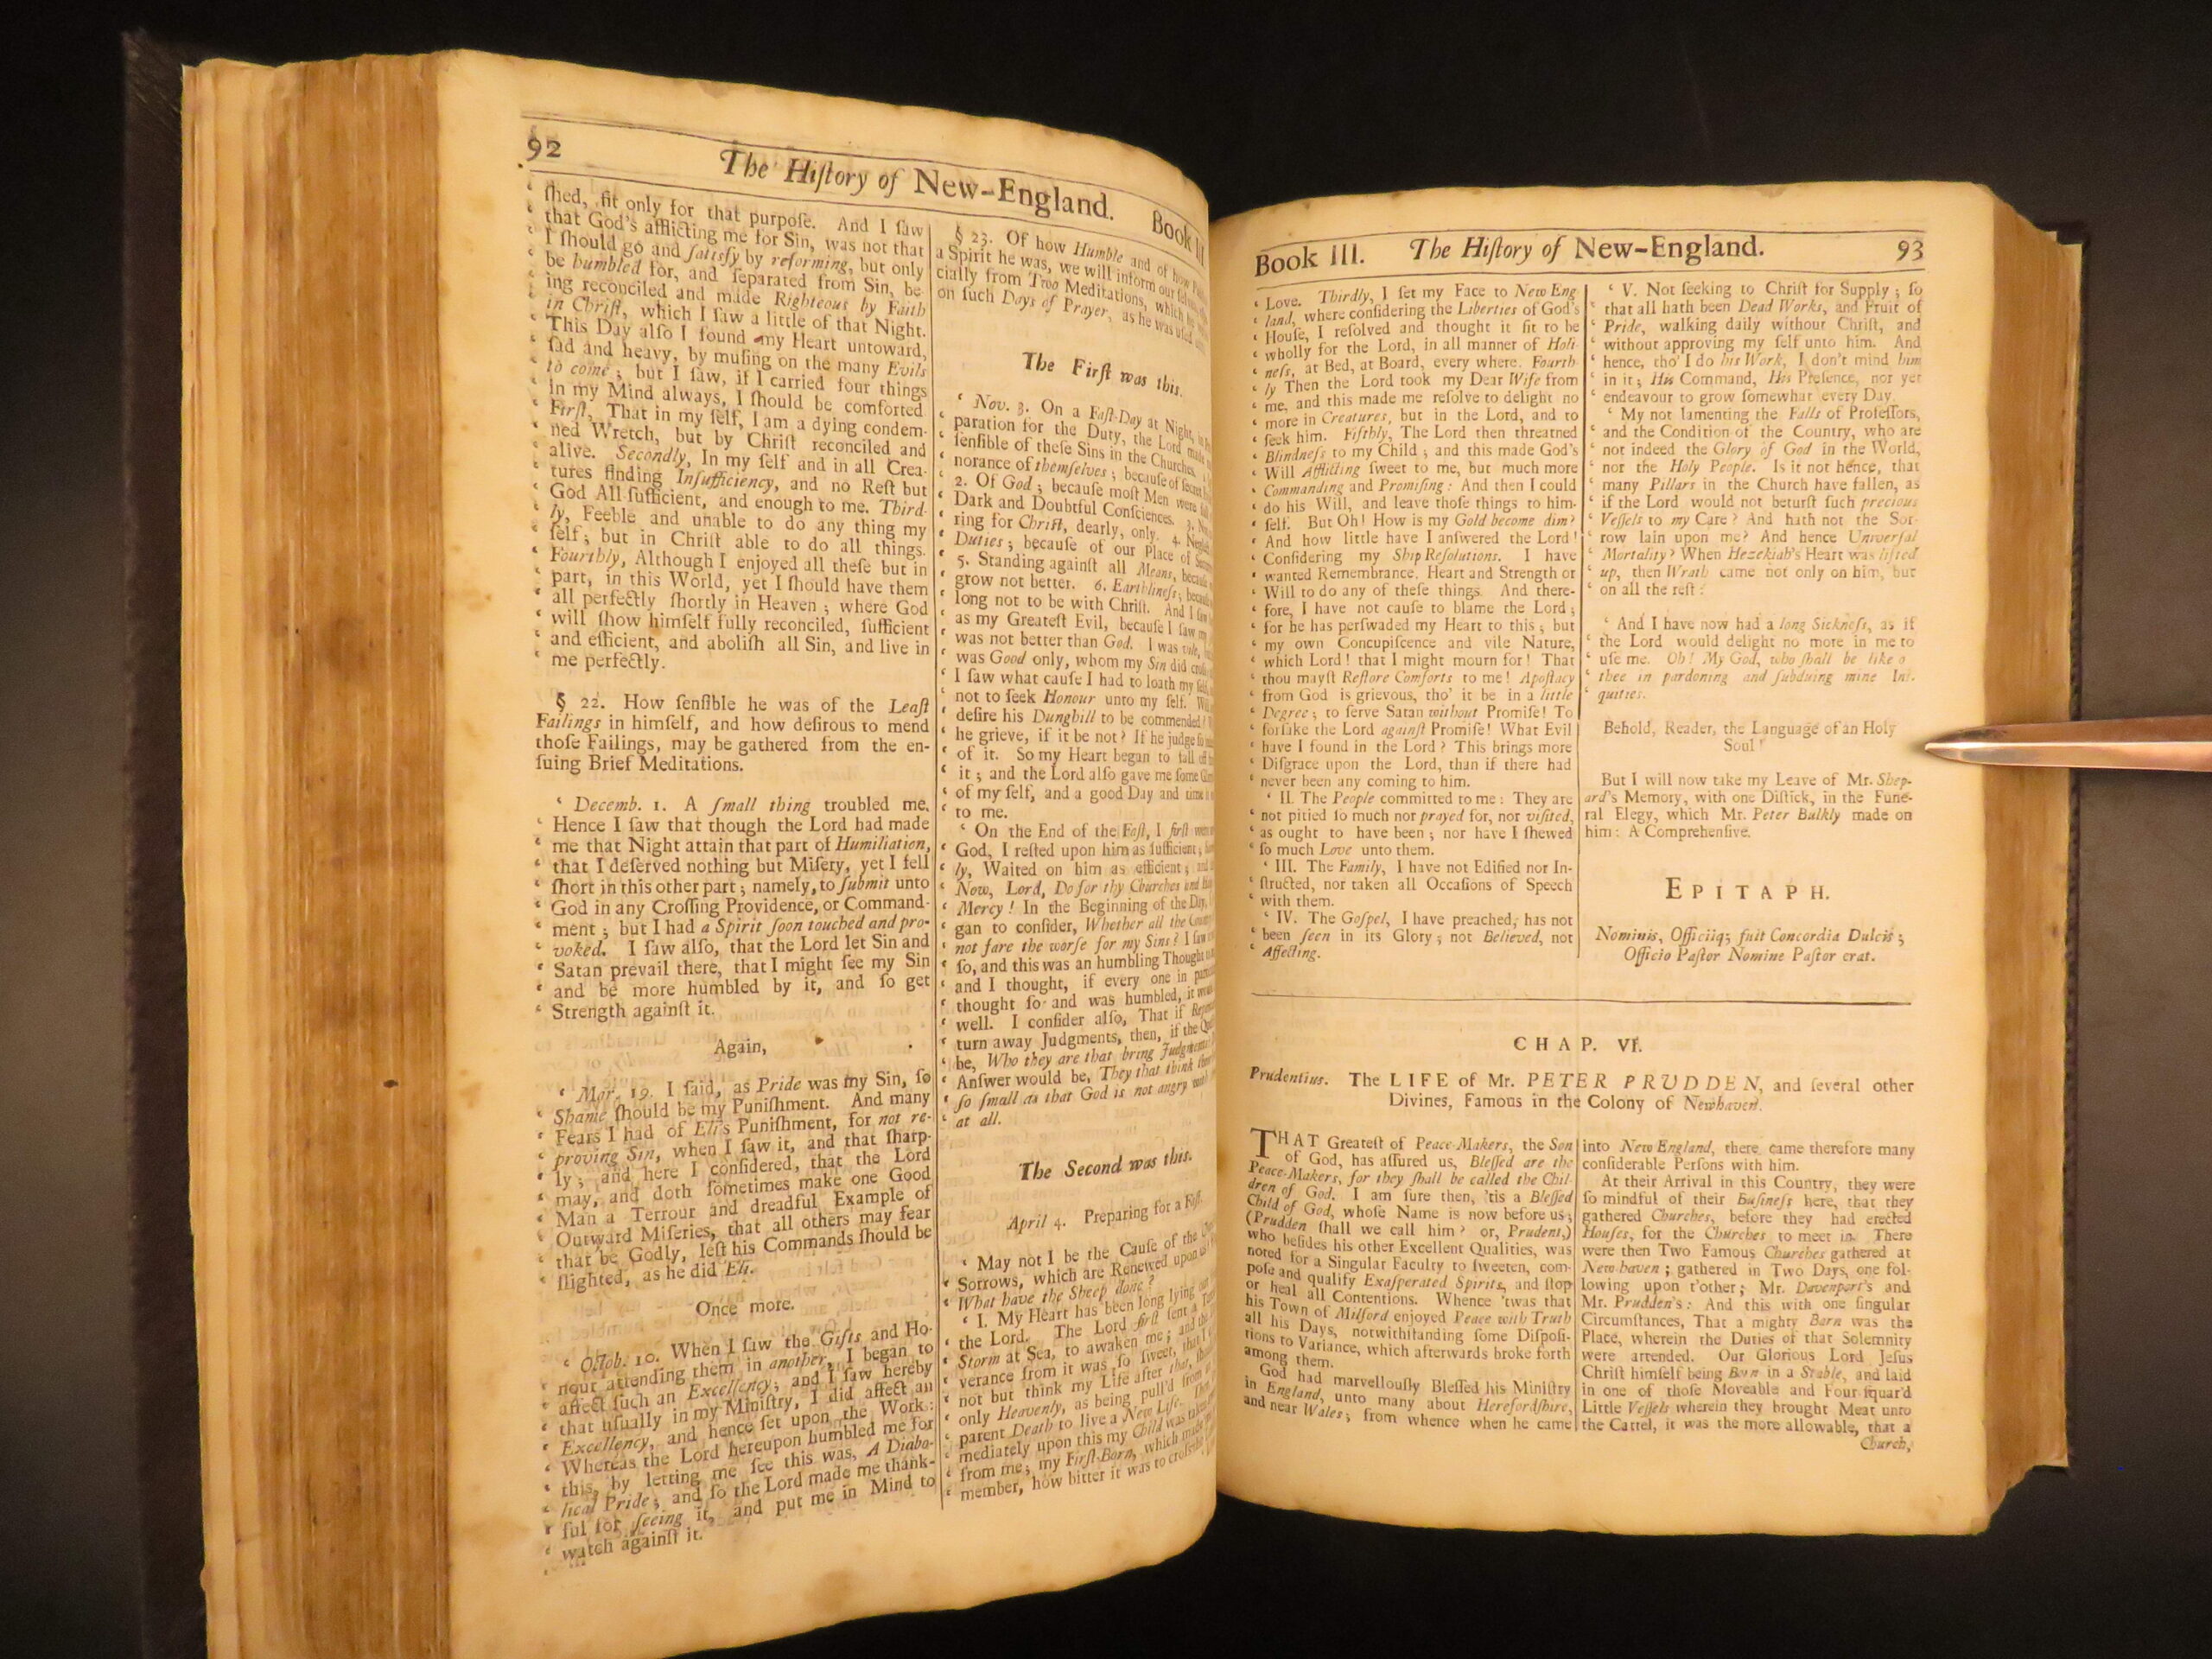 92 The Hiſtory of New-England. Book III
ſhed, fit only for that purpoſe. And I ſaw
‘ that God's afflicting me for Sin, was not that
‘ I ſhould go and ſatisfy by reforming, but only
‘ be humbled for, and ſeparated from Sin, be
‘ ing reconciled and made Righteous by Faith
‘ in Chriſt, which I ſaw a little of that Night.
‘ This Day alſo I found my Heart untoward,
‘ ſad and heavy, by muſing on the many Evils
‘ to come; but I ſaw, if I carried four things
‘ in my Mind always, I ſhould be comforted
‘ Firſt, That in my ſelf, I am a dying condem-
‘ ned Wretch, but by Chriſt reconciled and
‘ alive. Secondly, In my ſelf and in all Crea-
‘ tures finding Inſufficiency, and no Reſt but
‘ God All-ſufficient, and enough to me. Third-
‘ ly, Feeble and unable to do any thing my
‘ ſelf; but in Chriſt able to do all things.
‘ Fourthly, Although I enjoyed all theſe but in
‘ part, in this World, yet I ſhould have them
‘ all perfectly ſhortly in Heaven; where God
‘ will ſhow himſelf fully reconciled, ſufficient
‘ and efficient, and aboliſh all Sin, and live in
‘ me perfectly.
§ 22. How ſenſible he was of the Leaſt
Failings in himſelf, and how deſirous to mend
thoſe Failings, may be gathered from the en-
ſuing Brief Meditations.
‘ Decemb. 1. A ſmall thing troubled me,
‘ Hence I ſaw that though the Lord had made
‘ me that Night attain that part of Humiliation,
‘ that I deſerved nothing but Miſery, yet I fell
‘ ſhort in this other part; namely, to ſubmit unto
‘ God in any Croſſing Providence, or Command-
‘ ment; but I had a Spirit ſoon touched and pro-
‘ voked. I ſaw alſo, that the Lord let Sin and
‘ Satan prevail there, that I might ſee my Sin
‘ and be more humbled by it, and ſo get
‘ Strength againſt it.
Again,
‘ Mar. 19. I ſaid, as Pride was my Sin, ſo
‘ Shame ſhould be my Puniſhment. And many
‘ Fears I had of Eli's Puniſhment, for not re-
‘ proving Sin, when I ſaw it, and that ſharp-
‘ ly; and here I conſidered, that the Lord
‘ may, and doth ſometimes make one Good
‘ Man a Terrour and dreadful Example of
‘ Outward Miſeries, that all others may fear
‘ that be Godly, leſt his Commands ſhould be
‘ ſlighted, as he did Eli.
Once more.
‘ Octob. 10. When I ſaw the Gifts and Ho-
‘ nour attending them in another, I began to
‘ affect ſuch an Excellency; and I ſaw hereby
‘ that uſually in my Miniſtry, I did affect an
‘ Excellency, and hence ſet upon the Work:
‘ Whereas the Lord hereupon humbled me for
‘ this, by letting me ſee this was, A Diabo-
‘ lical Pride; and ſo the Lord made me thank-
‘ ful for ſeeing it, and put me in Mind to
‘ watch againſt it.
§ 23. Of how Humble and of how
a Spirit he was, we will inform our ſelves
cially from Two Meditations, which
on ſuch Days of Prayer, as he was uſed
The Firſt was this.
‘ Nov. 3. On a Faſt-Day at Night, in
‘ paration for the Duty, the Lord made
‘ ſenſible of theſe Sins in the Churches.
‘ norance of themſelves; becauſe of ſecret
‘ 2. Of God; becauſe moſt Men were
‘ Dark and Doubtful Conſciences. 3.
‘ ring for Chriſt, dearly, only. 4. Neglect
‘ Duties; becauſe of our Place of
‘ 5. Standing againſt all Means, becauſe
‘ grow not better. 6. Earthlineſs; becauſe
‘ long not to be with Chriſt. And I ſaw
‘ as my Greateſt Evil, becauſe I ſaw
‘ was not better than God. I was vile,
‘ was Good only, whom my Sin did croſs
‘ I ſaw what cauſe I had to loath my ſelf,
‘ not to ſeek Honour unto my ſelf. Will
‘ deſire his Dunghill to be commended?
‘ he grieve, if it be not? If he judge ſo
‘ of it. So my Heart began to fall off
‘ it; and the Lord alſo gave me ſome
‘ of my ſelf, and a good Day and time
‘ to me.
‘ On the End of the Faſt, I firſt went
‘ God, I reſted upon him as ſufficient;
‘ ly, Waited on him as efficient; and
‘ Now, Lord, Do for thy Churches and
‘ Mercy! In the Beginning of the Day,
‘ gan to conſider, Whether all the Country
‘ not fare the worſe for my Sins? I ſaw
‘ ſo, and this was an humbling Thought
‘ and I thought, if every one in
‘ thought ſo and was humbled, it would
‘ well. I conſider alſo, That if
‘ turn away Judgments, then, if the
‘ be, Who they are that bring Judgments?
‘ Anſwer would be, They that think
‘ ſo ſmall as that God is not angry with
‘ at all.
The Second was this.
April 4. Preparing for a Faſt.
‘ May not I be the Cauſe of the
‘ Sorrows, which are Renewed upon us?
‘ What have the Sheep done?
‘ I. My Heart has been long lying
‘ the Lord. The Lord firſt ſent a
‘ Storm at Sea, to awaken me; and the
‘ verance from it was ſo ſweet, that I
‘ not but think my Life after that, ſhould
‘ only Heavenly, as being pull'd from
‘ parent Death to live a New Life.
‘ mediately upon this my Child was taken
‘ from me; my Firſt-Born, which made
‘ member, how bitter it was to croſs the
Book III. The Hiſtory of New-England. 93
‘ Love. Thirdly, I ſet my Face to New Eng
‘ land, where conſidering the Liberties of God's
‘ Houſe, I reſolved and thought it fit to be
‘ wholly for the Lord, in all manner of Holi
‘ neſs, at Bed, at Board, every where. Fourth
‘ ly Then the Lord took my Dear Wife from
‘ me, and this made me reſolve to delight no
‘ more in Creatures, but in the Lord, and to
‘ ſeek him. Fifthly, The Lord then threatned
‘ Blindneſs to my Child; and this made God's
‘ Will Afflicting ſweet to me, but much more
‘ Commanding and Promiſing: And then I could
‘ do his Will, and leave thoſe things to him-
‘ ſelf. But Oh! How is my Gold become dim?
‘ And how little have I anſwered the Lord!
‘ Conſidering my Ship Reſolutions. I have
‘ wanted Remembrance, Heart and Strength or
‘ Will to do any of theſe things. And there-
‘ fore, I have not cauſe to blame the Lord;
‘ for he has perſwaded my Heart to this; but
‘ my own Concupiſcence and vile Nature,
‘ which Lord! that I might mourn for! That
‘ thou mayſt Reſtore Comforts to me! Apoſtacy
‘ from God is grievous, tho' it be in a little
‘ Degree; to ſerve Satan without Promiſe! To
‘ forſake the Lord againſt Promiſe! What Evil
‘ have I found in the Lord? This brings more
‘ Diſgrace upon the Lord, than if there had
‘ never been any coming to him.
‘ II. The People committed to me: They are
‘ not pitied ſo much nor prayed for, nor viſited,
‘ as ought to have been; nor have I ſhewed
‘ ſo much Love unto them.
‘ III. The Family, I have not Edified nor In-
‘ ſtructed, nor taken all Occaſions of Speech
‘ with them.
‘ IV. The Goſpel, I have preached, has not
‘ been ſeen in its Glory; not Believed, not
‘ Affecting.
‘ V. Not ſeeking to Chriſt for Supply; ſo
‘ that all hath been Dead Works, and Fruit of
‘ Pride, walking daily without Chriſt, and
‘ without approving my ſelf unto him. And
‘ hence, tho' I do his Work, I don't mind him
‘ in it; His Command, His Preſence, nor yet
‘ endeavour to grow ſomewhat every Day.
‘ My not lamenting the Falls of Profeſſors,
‘ and the Condition of the Country, who are
‘ not indeed the Glory of God in the World,
‘ nor the Holy People. Is it not hence, that
‘ many Pillars in the Church have fallen, as
‘ if the Lord would not betruſt ſuch precious
‘ Veſſels to my Care? And hath not the Sor-
‘ row lain upon me? And hence Univerſal
‘ Mortality? When Hezekiah's Heart was lifted
‘ up, then Wrath came not only on him, but
‘ on all the reſt:
‘ And I have now had a long Sickneſs, as if
‘ the Lord would delight no more in me to
‘ uſe me. Oh! My God, who ſhall be like o
‘ thee in pardoning and ſubduing mine Ini-
‘ quities.
Behold, Reader, the Language of an Holy
Soul!
But I will now take my Leave of Mr. Shep-
ard's Memory, with one Diſtick, in the Fune-
ral Elegy, which Mr. Peter Bulkly made on
him: A Comprehenſive.
EPITAPH.
Nominis, Officiiq; fuit Concordia Dulcis;
Officio Paſtor Nomine Paſtor erat.
CHAP. VI.
Prudentius. The LIFE of Mr. PETER PRUDDEN, and ſeveral other
Divines, Famous in the Colony of Newhaven.
THAT Greateſt of Peace-Makers, the Son
of God, has aſſured us, Bleſſed are the
Peace-Makers, for they ſhall be called the Chil-
dren of God. I am ſure then, 'tis a Bleſſed
Child of God, whoſe Name is now before us;
(Prudden ſhall we call him? or, Prudent,)
who beſides his other Excellent Qualities, was
noted for a Singular Faculty to ſweeten, com-
poſe and qualify Exaſperated Spirits, and ſtop
or heal all Contentions. Whence 'twas that
his Town of Milford enjoyed Peace with Truth
all his Days, notwithſtanding ſome Diſpoſi-
tions to Variance, which afterwards broke forth
among them.
God had marvellouſly Bleſſed his Miniſtry
in England, unto many about Herefordſhire,
and near Wales; from whence when he came
into New England, there came therefore many
conſiderable Perſons with him.
At their Arrival in this Country, they were
ſo mindful of their Buſineſs here, that they
gathered Churches, before they had erected
Houſes, for the Churches to meet in. There
were then Two Famous Churches gathered at
New-haven; gathered in Two Days, one fol-
lowing upon t'other; Mr. Davenport's and
Mr. Prudden's: And this with one ſingular
Circumſtances, That a mighty Barn was the
Place, wherein the Duties of that Solemnity
were attended. Our Glorious Lord Jeſus
Chriſt himſelf being Born in a Stable, and laid
in one of thoſe Moveable and Four-ſquar'd
Little Veſſels wherein they brought Meat unto
the Cattel, it was the more allowable, that a
Church,